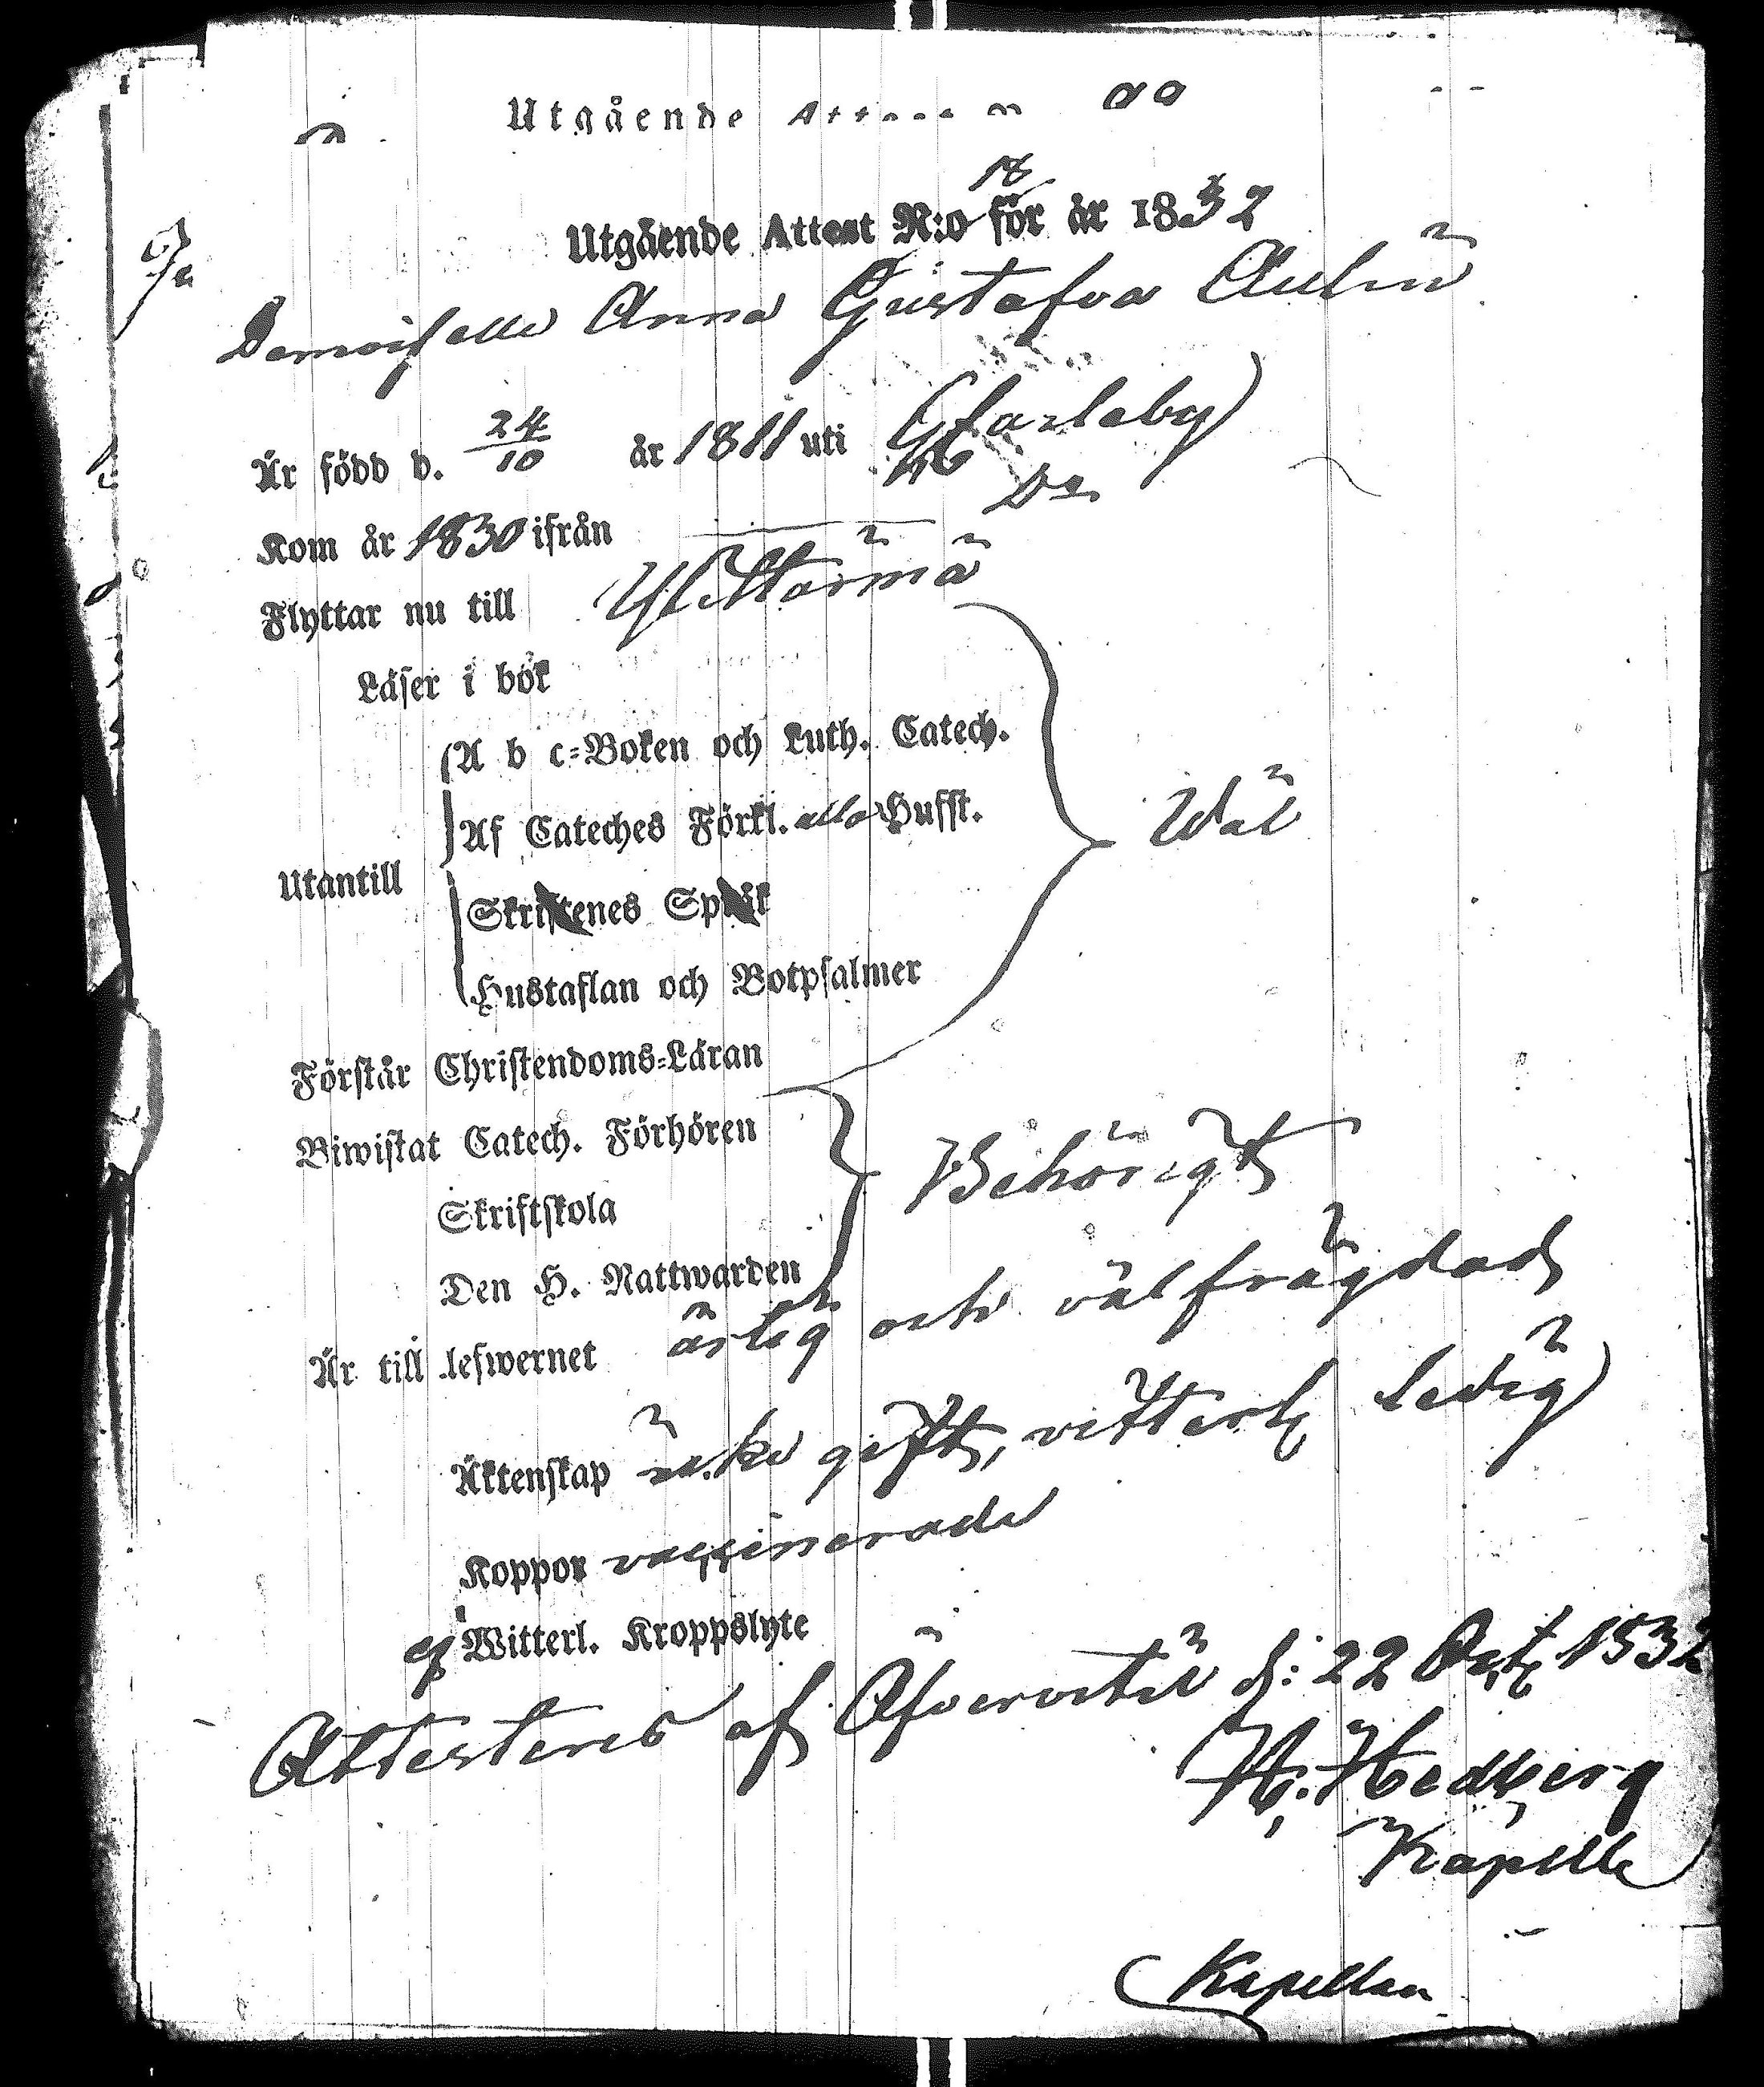 Utgående
Utgående Attest N:o 18 för år 1832
Demoiselle Anna Gustafva Aulin
Är född d. 24/10 år 1811 uti Gkarleby
Kom år 1830 ifrån Do
Flyttar nu till Ylittarniä
Läser i bok
A b c=Boken och Luth. Catech.
Af Cateches Förkl. alla Hufst.
Wäl
Utantill
Skriftenes Språk
Hustaflan och Botpsalmer
Förstår Christendoms=Läran
Biwistat Catech. Förhören
Behörigt
Skriftskola
Den H. Nattwarden
Är till lefwernet ärlig och välfrägdad
Äktenskap icke gift, vitterl. ledig
Koppor vaccinerade
ej Witterl. Kroppslyte
Attesteres af Öfvervetil d: 22 Oct. 1832
H. Hedberg
Kapell
Kapellan